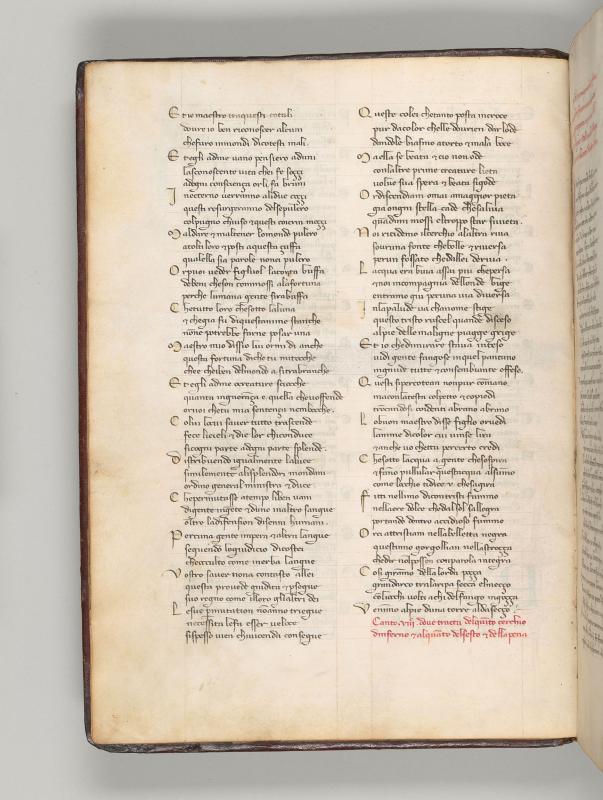 Et io maestro traquesti cotali
dovre io ben riconoscer alcuni
che furo inmondi dicotesti mali
Et egli adme vano pensiero aduni
lasconoscente vita chei fe sozzi
adogni conoscenza or li fa bruni
In eterno verranno alidue cozzi
questi resurgeranno delsepulcro
colpugno chiuso et questi coiern mozzi
Maldare et maltener lomondo pulcro
a tolti loro et posti aquesta zuffa
qualella sia parole nonci pulcro
Or puoi veder figliuol lacorta buffa
debeni cheson commessi alafortuna
perche lumana gente sirabuffa
Chetutto loro chesotto laluna
et chegia fu diquestanime stanche
none potrebbe farne posar una
Maestro mio dissio lui or mi di anche
questa fortuna diche tu mitocche
che e cheiben delmondo a sitrabranche
Et egli adme o creature sciocche
quanta ingnoranza e quella chevoffende
or vuoi chetu mia sentenza nembocche
Colui locui saver tutto trascende
fece licieli et die lor chi conduce
sicogni parte adogni parte splende
Distribuendo igualmente laluce
similemente alisplendor mondani
ordino general ministra et duce
Chepermutasse atempo liben vani
digente ingente et duno inaltro sangue
oltre ladifension disenni humani
Perchuna gente impera et altra langue
seguendo logiudicio dicostei
che e occulto come inerba langue
Vostro saver nona contasto allei
questa provede giudica et persegue
suo regno come illoro glialtri dei
Lesue permutation nonanno triegue
necessita lafa esser veloce
sispesso vien chi vicenda consegue
Queste colei che tanto posta incroce
pur dacolor chelle dovrien dar lode
dandole biasmo atorto et mala voce
Maella se beata et cio non ode
conlaltre prime creature lieta
volve sua spera et beata sigode
Or discendiam omai amaggior pieta
gia ongni stella cade chesaliva
quandomi mossi eltroppo star sivieta
Noi ricidemo ilcerchio alaltra riva
sovruna fonte chebolle et riversa
perun fossato chedallei deriva
Lacqua era buia assai piu chepersa
et noi incompagnia dellonde bige
entramo giu peruna via diversa
Inlapalude va chanome stige
questo tristo ruscel quande disceso
alpie delle maligne piagge grige
Et io chedimirare stava inteso
vidi gente fangose inquel pantano
ingnude tutte et consembiante offeso
Questi sipercotean nonpur comano
maconlatesta colpetto et copiedi
troncandosi codenti abrano abrano
Lobuon maestro disse figlio or vedi
lanime dicolor cui vinse lira
et anche vo chetu percerto credi
Chesotto lacqua a gente chesospira
et fanno pullular questacqua alsummo
come locchio tidice uchesagira
Fitti nellimo dicontristi fummo
nellaere dolce chedalsol sallegra
portando dentro accidioso fummo
Or ci attristiam nellabelletta negra
questinno gorgoglian nellastrozza
chedir nolposson conparola integra
Cosi giramo dellalorda pozza
grandarco tralaripa secca elmezzo
cogliocchi volti achi delfango ingozza
Venimmo alpie duna torre aldasezzo
Canto .viii. dove tracta delquinto cerchio
dinferno et alquanto delsesto et della pena